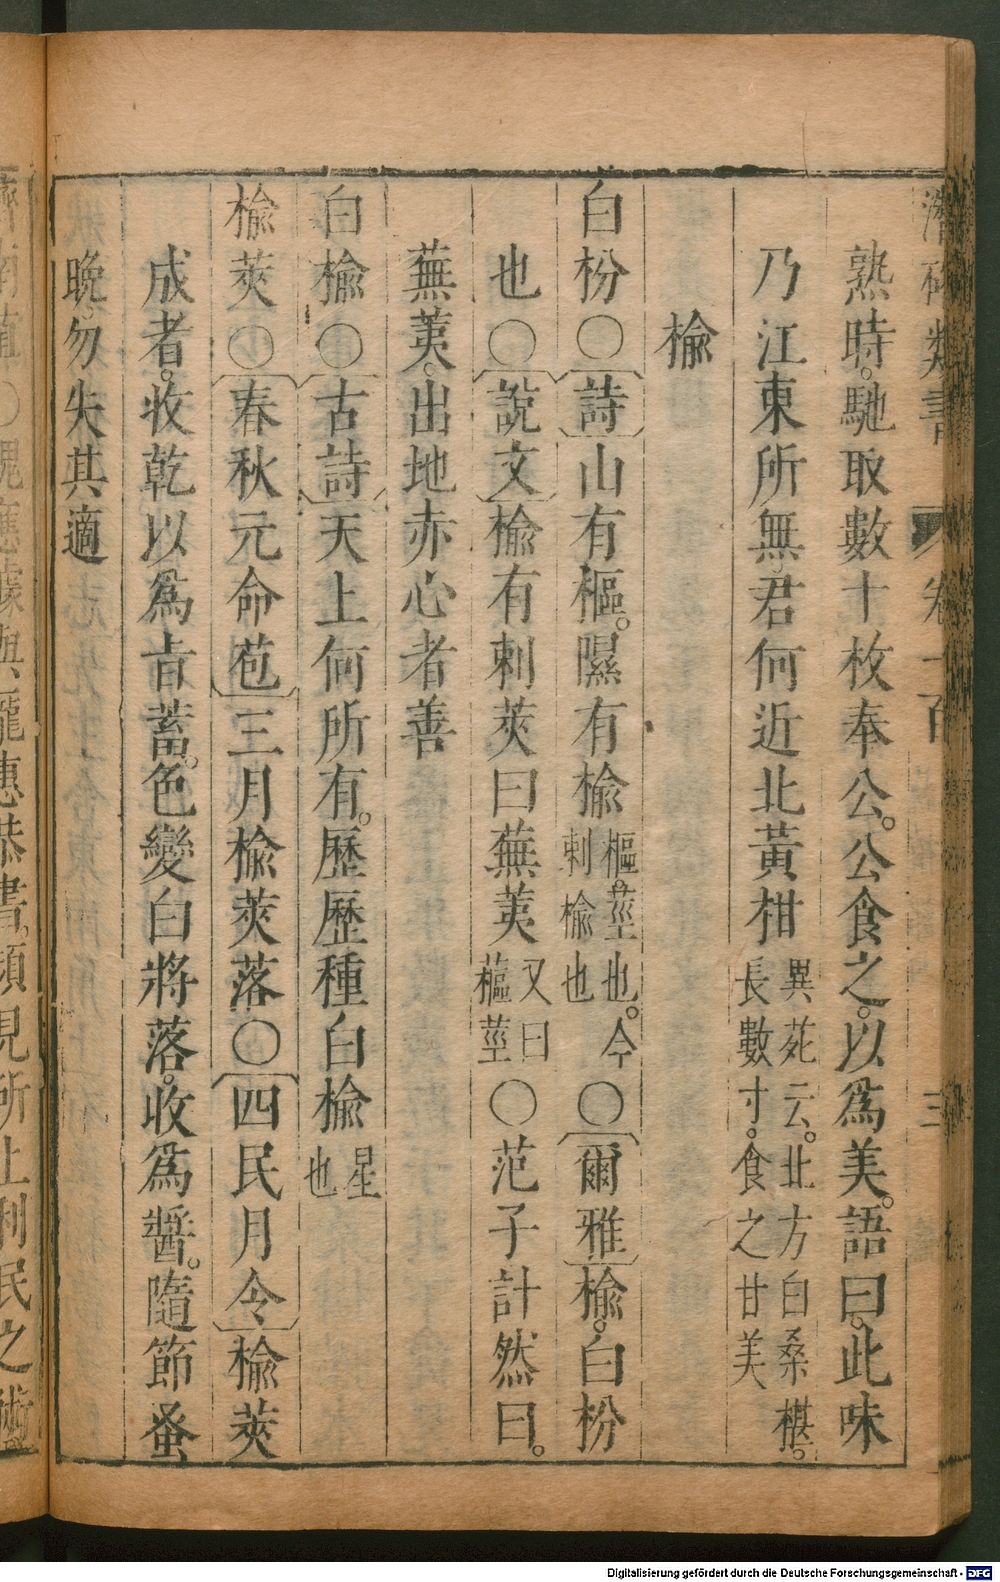 潛確類書 卷一百 三
熟時。馳取數十枚奉公。公食之。以爲美。語曰。此味
乃江東所無。君何近北黃柑異苑云。北方白桑椹。長數寸。食之甘美
榆
白枌〇詩山有樞。隰有榆樞。莖也。今刺榆也〇爾雅榆。白枌
也〇說文榆有刺莢曰蕪荑又曰蓲莖〇范子計然曰。
蕪荑。出地赤心者善
白榆〇古詩天上何所有。歷歷種白榆星也
榆莢〇春秋元命苞三月榆莢落〇四民月令榆莢
成者。收乾以爲旨蓄。色變白將落。收爲醬。隨節蚤
晚。勿失其適
Digitalisierung gefördert durch die Deutsche Forschungsgemeinschaft - DFG